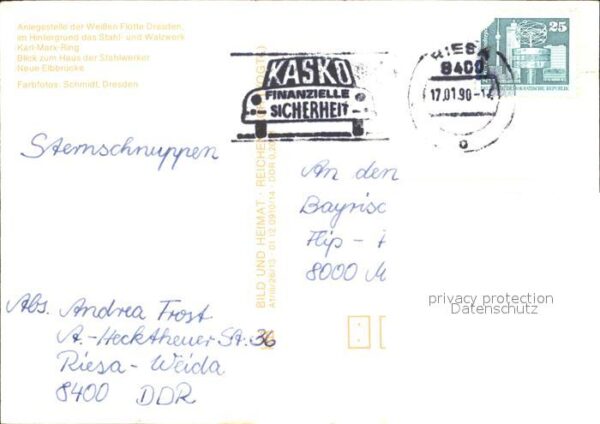 Anlegestelle der Weißen Flotte Dresden,
im Hintergrund das Stahl- und Walzwerk
Karl-Marx-Ring
Blick zum Haus der Stahlwerker
Neue Elbbrücke
Farbfotos: Schmidt, Dresden
KASKO
FINANZIELLE
SICHERHEIT
RIESA
8400
17.01.90-12
25
DEMOKRATISCHE REPUBLIK
Sternschnuppen
BILD UND HEIMAT · REICHEN
OGTL)
A1/III/26/13 · 01 12 0910/14 · DDR 0,20
An den
Bayrisc
Flip -
8000 M
privacy protection
Datenschutz
Abs. Andrea Frost
A.-Hecktheuer Str. 36
Riesa-Weida
8400 DDR